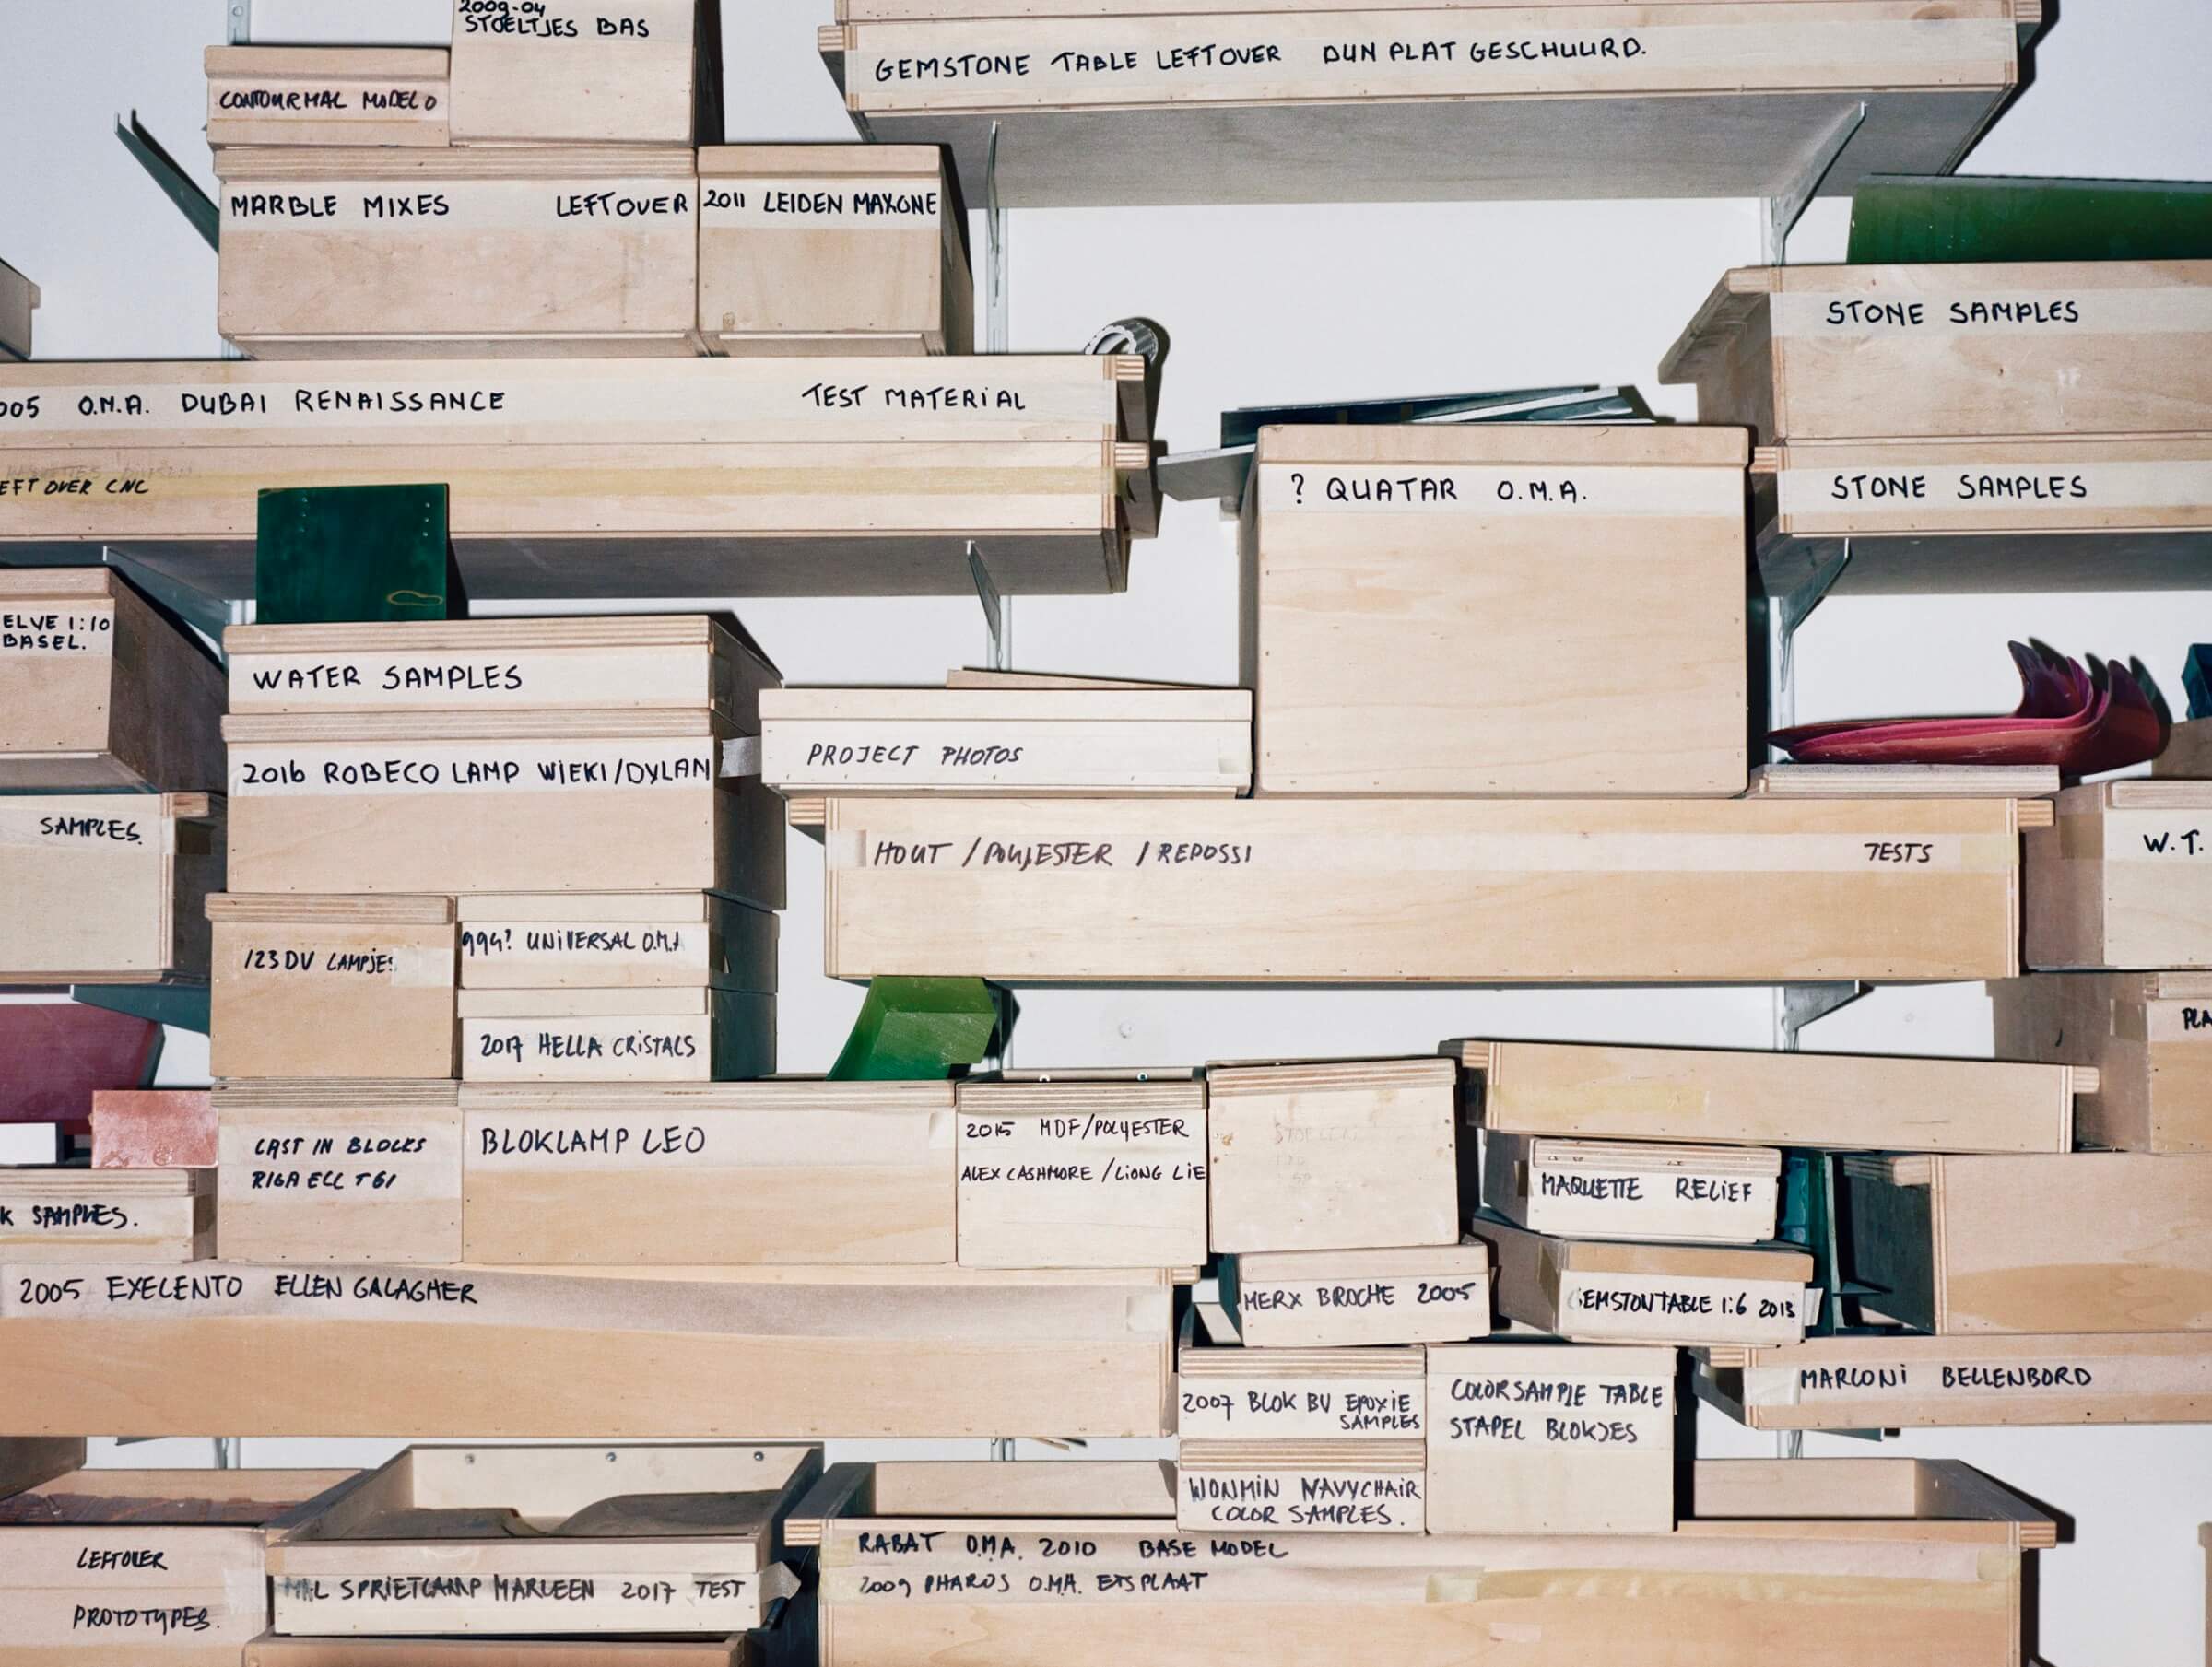 2009-04
STOELTJES BAS
GEMSTONE TABLE LEFTOVER DUN PLAT GESCHUURD.
CONTOURMAL MODEL O
MARBLE MIXES LEFTOVER
2011 LEIDEN MAXONE
STONE SAMPLES
005 O.M.A. DUBAI RENAISSANCE TEST MATERIAL
EFT OVER CNC
? QUATAR O.M.A.
STONE SAMPLES
ELVE 1:10
BASEL.
WATER SAMPLES
PROJECT PHOTOS
2016 ROBECO LAMP WIEKI/DYLAN
SAMPLES.
HOUT / POLYESTER / REPOSSI TESTS
W.T.
123 DV LAMPJES
994? UNIVERSAL O.M.A
2017 HELLA CRISTALS
PLA
CAST IN BLOCKS
BLOKLAMP LEO
2015 MDF/POLYESTER
ALEX CASHMORE / LIONG LIE
MAQUETTE RELIEF
K SAMPLES.
2005 EXELENTO ELLEN GALAGHER
MERX BROCHE 2005
GEMSTONTABLE 1:6 2013
MARCONI BELLENBORD
2007 BLOK BV EPOXIE
SAMPLES
COLORSAMPLE TABLE
STAPEL BLOKJES
WONMIN NAVYCHAIR
COLOR SAMPLES.
RABAT O.M.A. 2010 BASE MODEL
2009 PHAROS O.M.A. ETSPLAAT
LEFTOVER
PROTOTYPES.
MAL SPRIETLAMP MARLEEN 2017 TEST